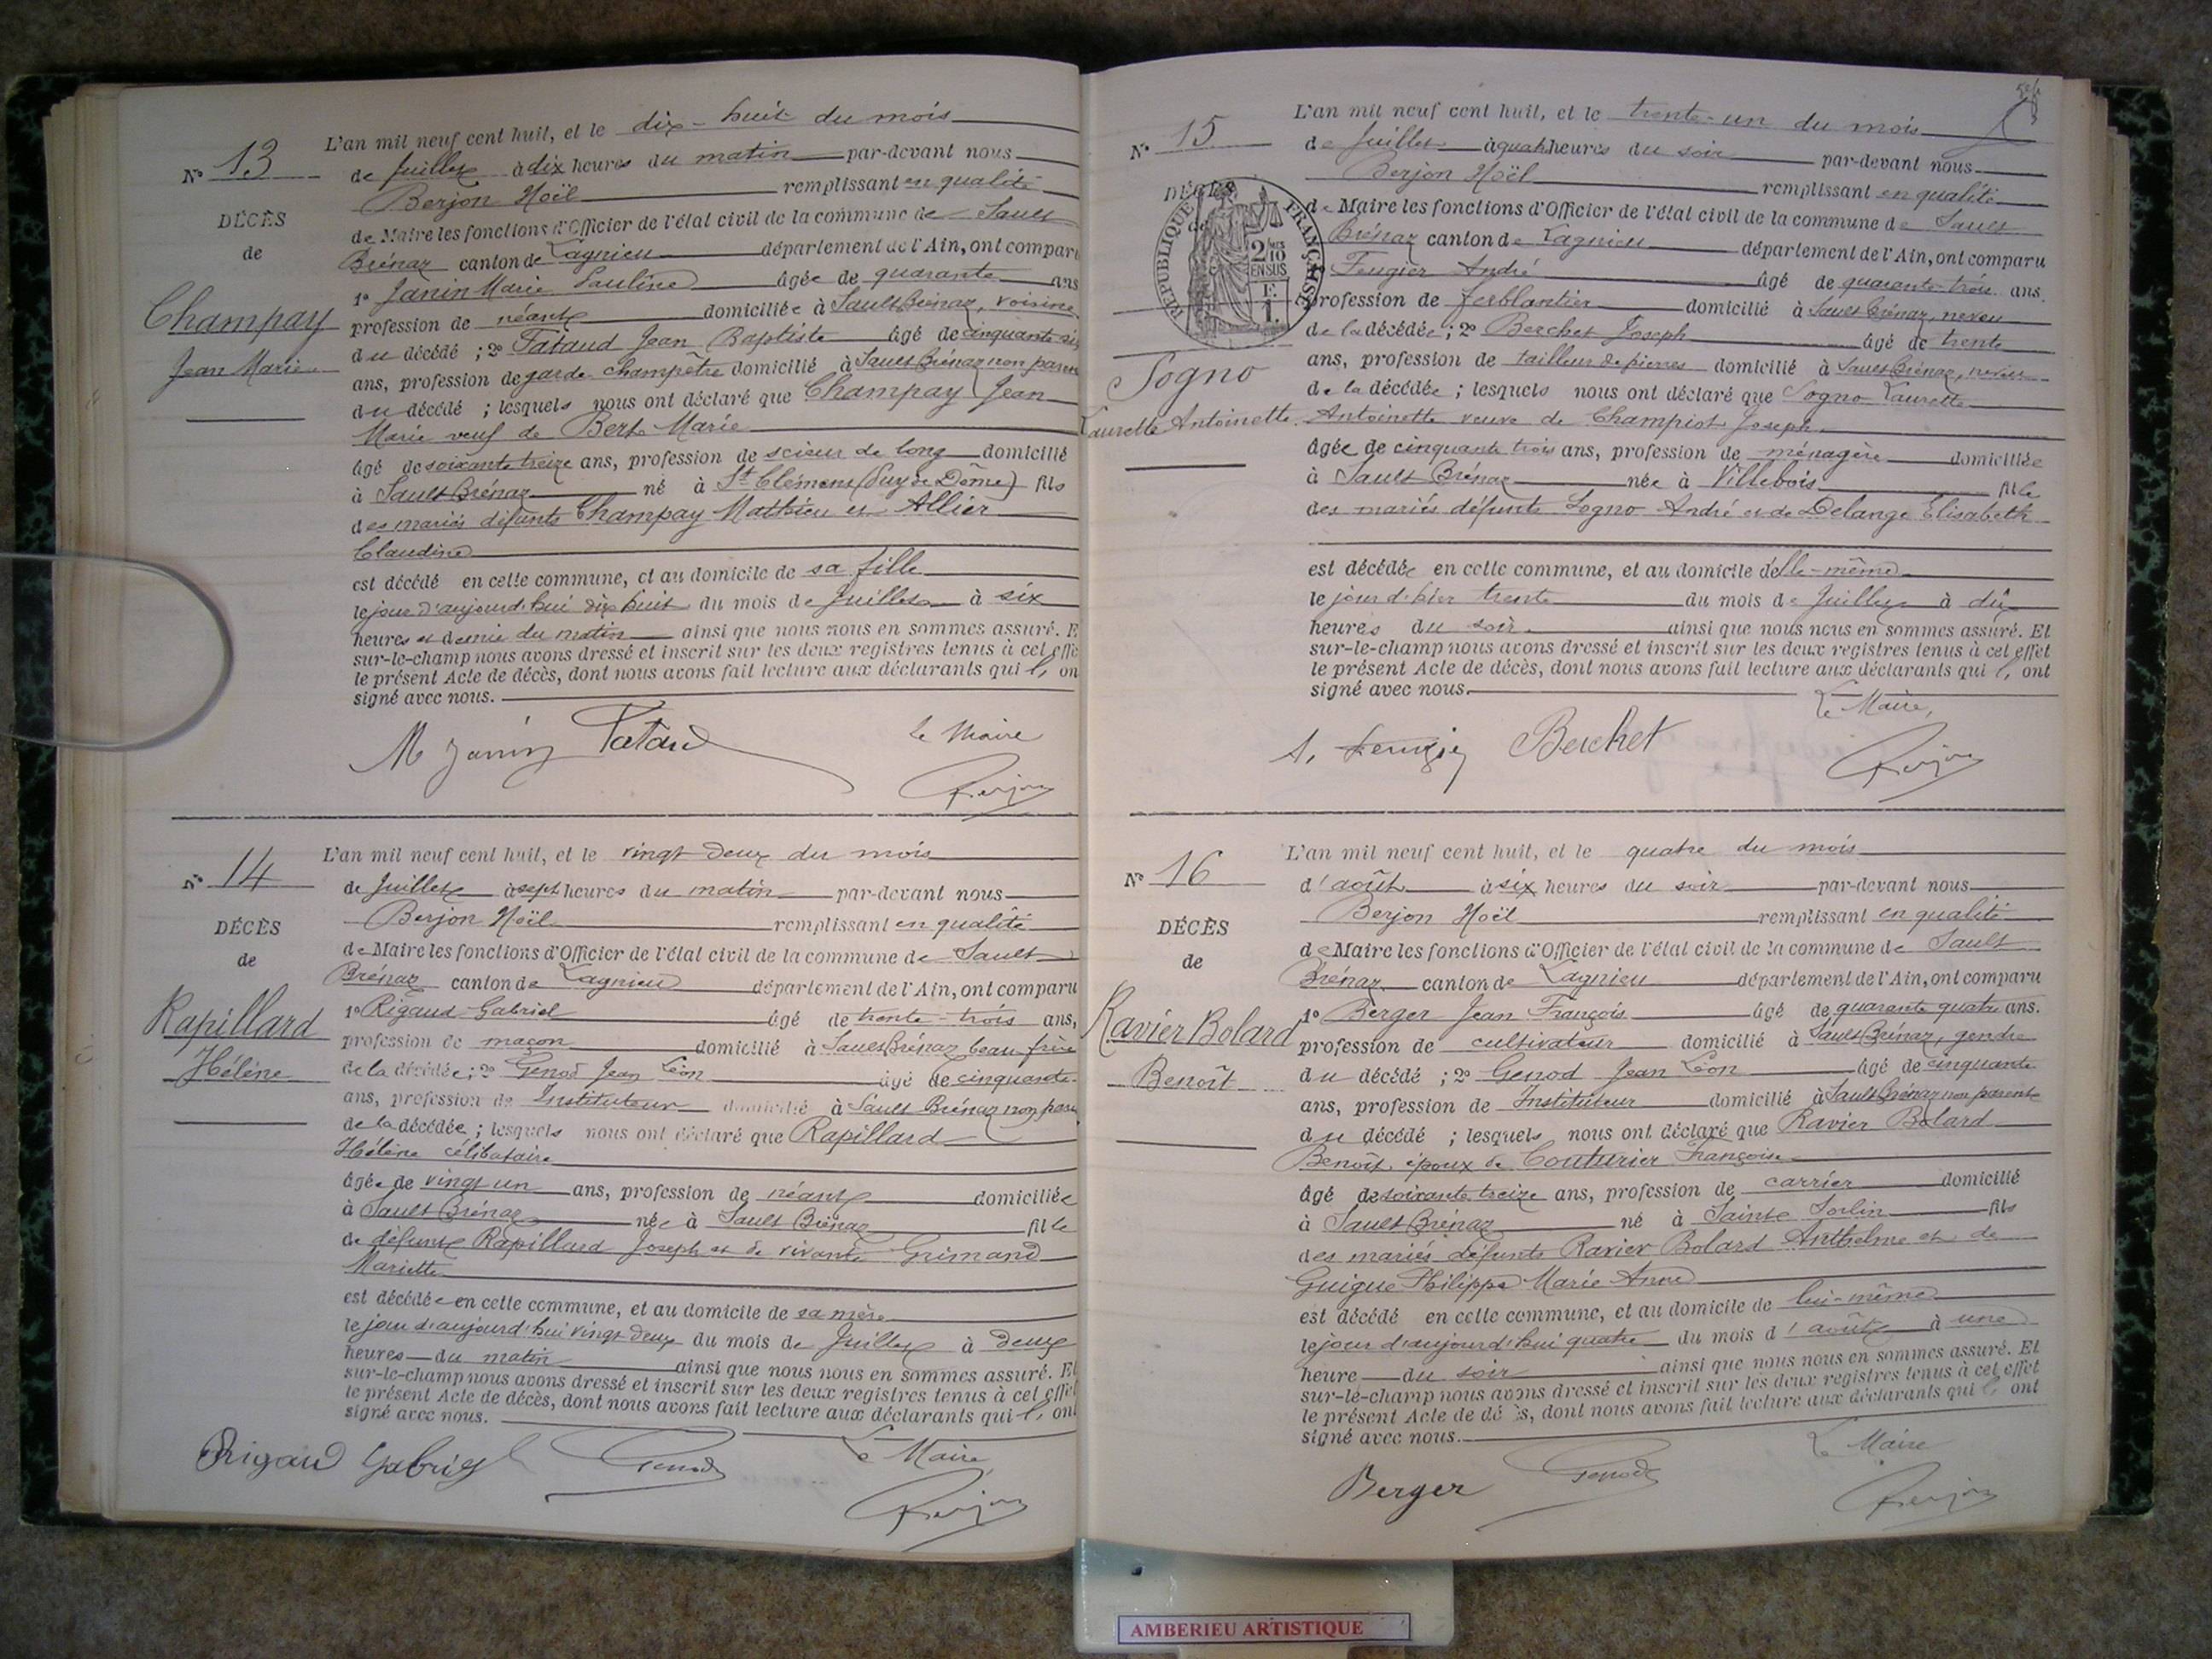 L'an mil neuf cent huit, et le dix-huit du mois
Nº 13
de Juillet à dix heures du matin par-devant nous
Berjon Noël remplissant en qualité
DÉCÈS
de Maire les fonctions d'Officier de l'état civil de la commune de Sault
de
Brénaz canton de Lagnieu département de l'Ain, ont comparu
1º Janin Marie Pauline âgée de quarante ans
Champay
profession de néant domiciliée à Sault Brénaz, voisine
du décédé ; 2º Tataud Jean Baptiste âgé de cinquante six
Jean Marie
ans, profession de garde champêtre domicilié à Sault Brénaz non parent
du décédé ; lesquels nous ont déclaré que Champay Jean
Marie veuf de Bert Marie
âgé de soixante treize ans, profession de scieur de long domicilié
à Sault Brénaz né à St Clément (Puy de Dôme) fils
des mariés défunts Champay Mathieu et Allier
Claudine
est décédé en cette commune, et au domicile de sa fille
le jour d'aujourd'hui dix huit du mois de Juillet à six
heures et demie du matin ainsi que nous nous en sommes assuré. E
sur-le-champ nous avons dressé et inscrit sur les deux registres tenus à cet effe
le présent Acte de décès, dont nous avons fait lecture aux déclarants qui l' on
signé avec nous.
M Janin Tataud le Maire
Berjon
L'an mil neuf cent huit, et le vingt deux du mois
Nº 14
de Juillet à sept heures du matin par-devant nous
Berjon Noël remplissant en qualité
DÉCÈS
de Maire les fonctions d'Officier de l'état civil de la commune de Sault
de
Brénaz canton de Lagnieu département de l'Ain, ont comparu
1º Rigaud Gabriel âgé de trente-trois ans,
Rapillard
profession de maçon domicilié à Sault Brénaz beau frère
Hélène
de la décédée ; 2º Genod Jean Léon âgé de cinquante
ans, profession de Instituteur domicilié à Sault Brénaz non paren
de la décédée ; lesquels nous ont déclaré que Rapillard
Hélène célibataire
âgée de vingt un ans, profession de néant domiciliée
à Sault Brénaz née à Sault Brénaz fille
de défunt Rapillard Joseph et de vivante Grimand
Mariette
est décédée en cette commune, et au domicile de sa mère
le jour d'aujourd'hui vingt deux du mois de Juillet à deux
heures du matin ainsi que nous nous en sommes assuré. Et
sur-le-champ nous avons dressé et inscrit sur les deux registres tenus à cet effet
le présent Acte de décès, dont nous avons fait lecture aux déclarants qui l' ont
signé avec nous.
Le Maire
Rigaud Gabriel Genod
Berjon
L'an mil neuf cent huit, et le trente-un du mois
Nº 15
de Juillet à quatr heures du soir par-devant nous
Berjon Noël remplissant en qualité
DÉCÈS
de Maire les fonctions d'Officier de l'état civil de la commune de Sault
de
RÉPUBLIQUE FRANÇAISE
2/10 EN SUS
F. 1.
Brénaz canton de Lagnieu département de l'Ain, ont comparu
Feugier André âgé de quarante-trois ans
profession de ferblantier domicilié à Sault Brénaz, neveu
de la décédée ; 2º Berchet Joseph âgé de trente
ans, profession de tailleur de pierres domicilié à Sault Brénaz, neveu
Sogno
de la décédée ; lesquels nous ont déclaré que Sogno Laurette
Laurette Antoinette
Antoinette veuve de Champiot Joseph
âgée de cinquante trois ans, profession de ménagère domiciliée
à Sault Brénaz née à Villebois fille
des mariés défunts Sogno André et de Delange Elisabeth
est décédée en cette commune, et au domicile d'elle-même
le jour d'hier trente du mois de Juillet à dix
heures du soir ainsi que nous nous en sommes assuré. Et
sur-le-champ nous avons dressé et inscrit sur les deux registres tenus à cet effet
le présent Acte de décès, dont nous avons fait lecture aux déclarants qui l' ont
signé avec nous.
Le Maire,
A. Feugier Berchet Berjon
L'an mil neuf cent huit, et le quatre du mois
Nº 16
d'août à six heures du soir par-devant nous
Berjon Noël remplissant en qualité
DÉCÈS
de Maire les fonctions d'Officier de l'état civil de la commune de Sault
de
Brénaz canton de Lagnieu département de l'Ain, ont comparu
1º Berger Jean François âgé de quarante quatre ans.
Ravier Bolard
profession de cultivateur domicilié à Sault Brénaz, gendre
Benoît
du décédé ; 2º Genod Jean Léon âgé de cinquante
ans, profession de Instituteur domicilié à Sault Brénaz non parent
du décédé ; lesquels nous ont déclaré que Ravier Bolard
Benoît, époux de Couturier Françoise
âgé de soixante treize ans, profession de carrier domicilié
à Sault Brénaz né à Saint Sorlin fils
des mariés défunts Ravier Bolard Anthelme et de
Guigue Philippe Marie Anne
est décédé en cette commune, et au domicile de lui-même
le jour d'aujourd'hui quatre du mois d'août à une
heure du soir ainsi que nous nous en sommes assuré. Et
sur-le-champ nous avons dressé et inscrit sur les deux registres tenus à cet effet
le présent Acte de dé ès, dont nous avons fait lecture aux déclarants qui l' ont
signé avec nous.
Le Maire
Berger Genod
Berjon
AMBERIEU ARTISTIQUE